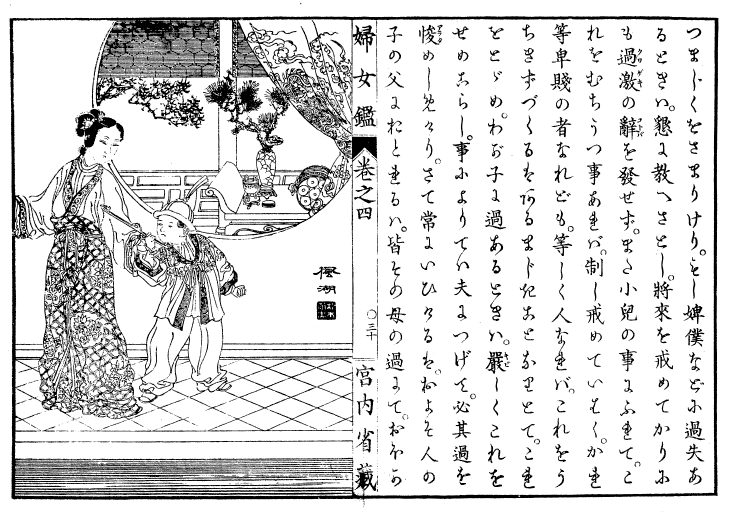 つましくをさまりけり。もし婢僕などに過失あ
るときハ。懇に教へさとし。將來を戒めてかりに
も過激の辭を發せず。また小兒の事にふれて。こ
れをむちうつ事あれバ。制し戒めていはく。かれ
等卑賤の者なれども。等しく人なれバ。これをう
ちきずづくるはあるまじきことなりとて。これ
をとゞめ。わが子に過あるときハ。嚴しくこれを
せめこらし。事によりてハ夫につげて。必其過を
悛めしめけり。さて常にいひけるは。およそ人の
子の父におとれるハ。皆その母の過にて。おほか
婦女鑑 卷之四 〇三十 宮内省藏
楓湖